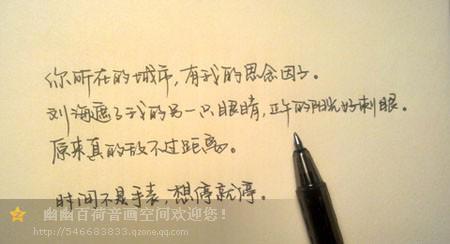 你所在的城市，有我的思念因子。
刘海遮了我的另一只眼睛，正午的阳光好刺眼。
原来真的敌不过距离。
时间不是手表，想停就停。
幽幽百荷音画空间欢迎您！
http://546683833.qzone.qq.com